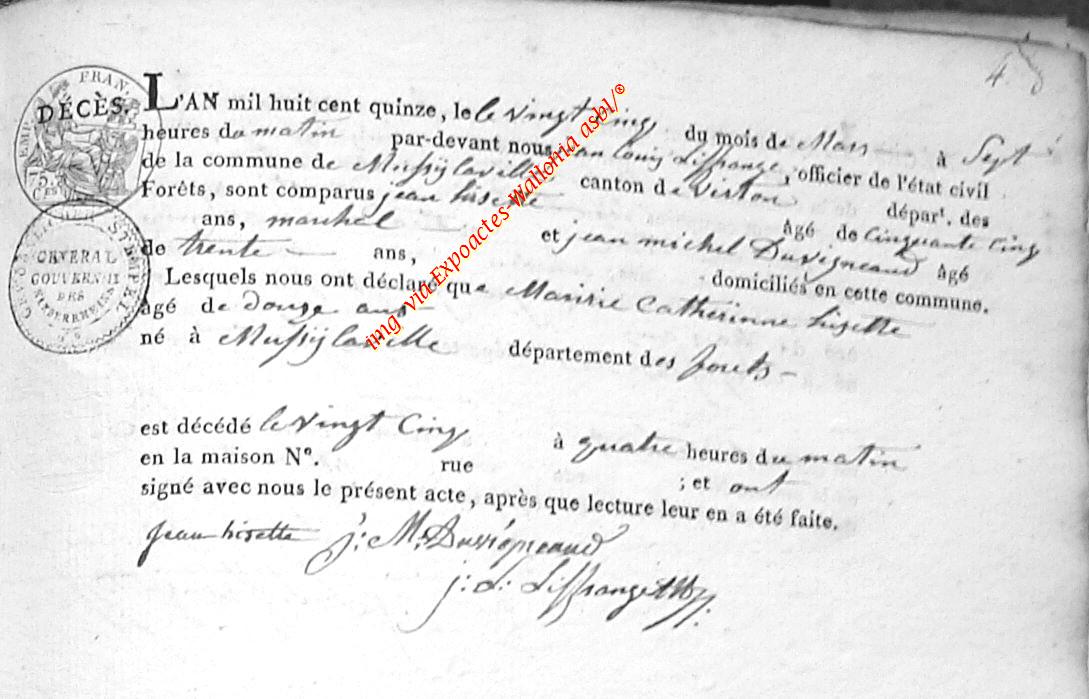 4.
DÉCÈS.
L'AN mil huit cent quinze, le le vingt cinq du mois de Mars à Sept
heures du matin par-devant nous jean louis Liffrange, officier de l'état civil
de la commune de Mussÿlaville canton de Virton dépar.t des
Forêts, sont comparus jean hisette âgé de Cinquante Cinq
ans, et jean michel Duvigneaud âgé
de trente ans, domiciliés en cette commune.
Lesquels nous ont déclaré que Marie Catherinne hisette
âgé de douze ans
né à Mussÿlaville département des forets
est décédé le vingt Cinq à quatre heures du matin
en la maison N°. rue ; et ont
signé avec nous le présent acte, après que lecture leur en a été faite.
jean hisette j: M. Duvigneaud
j: L: Liffrange
FRAN.
75
GÉNÉRAL
GOUVERN
DES
img via Expoactes Wallonia asbl/®